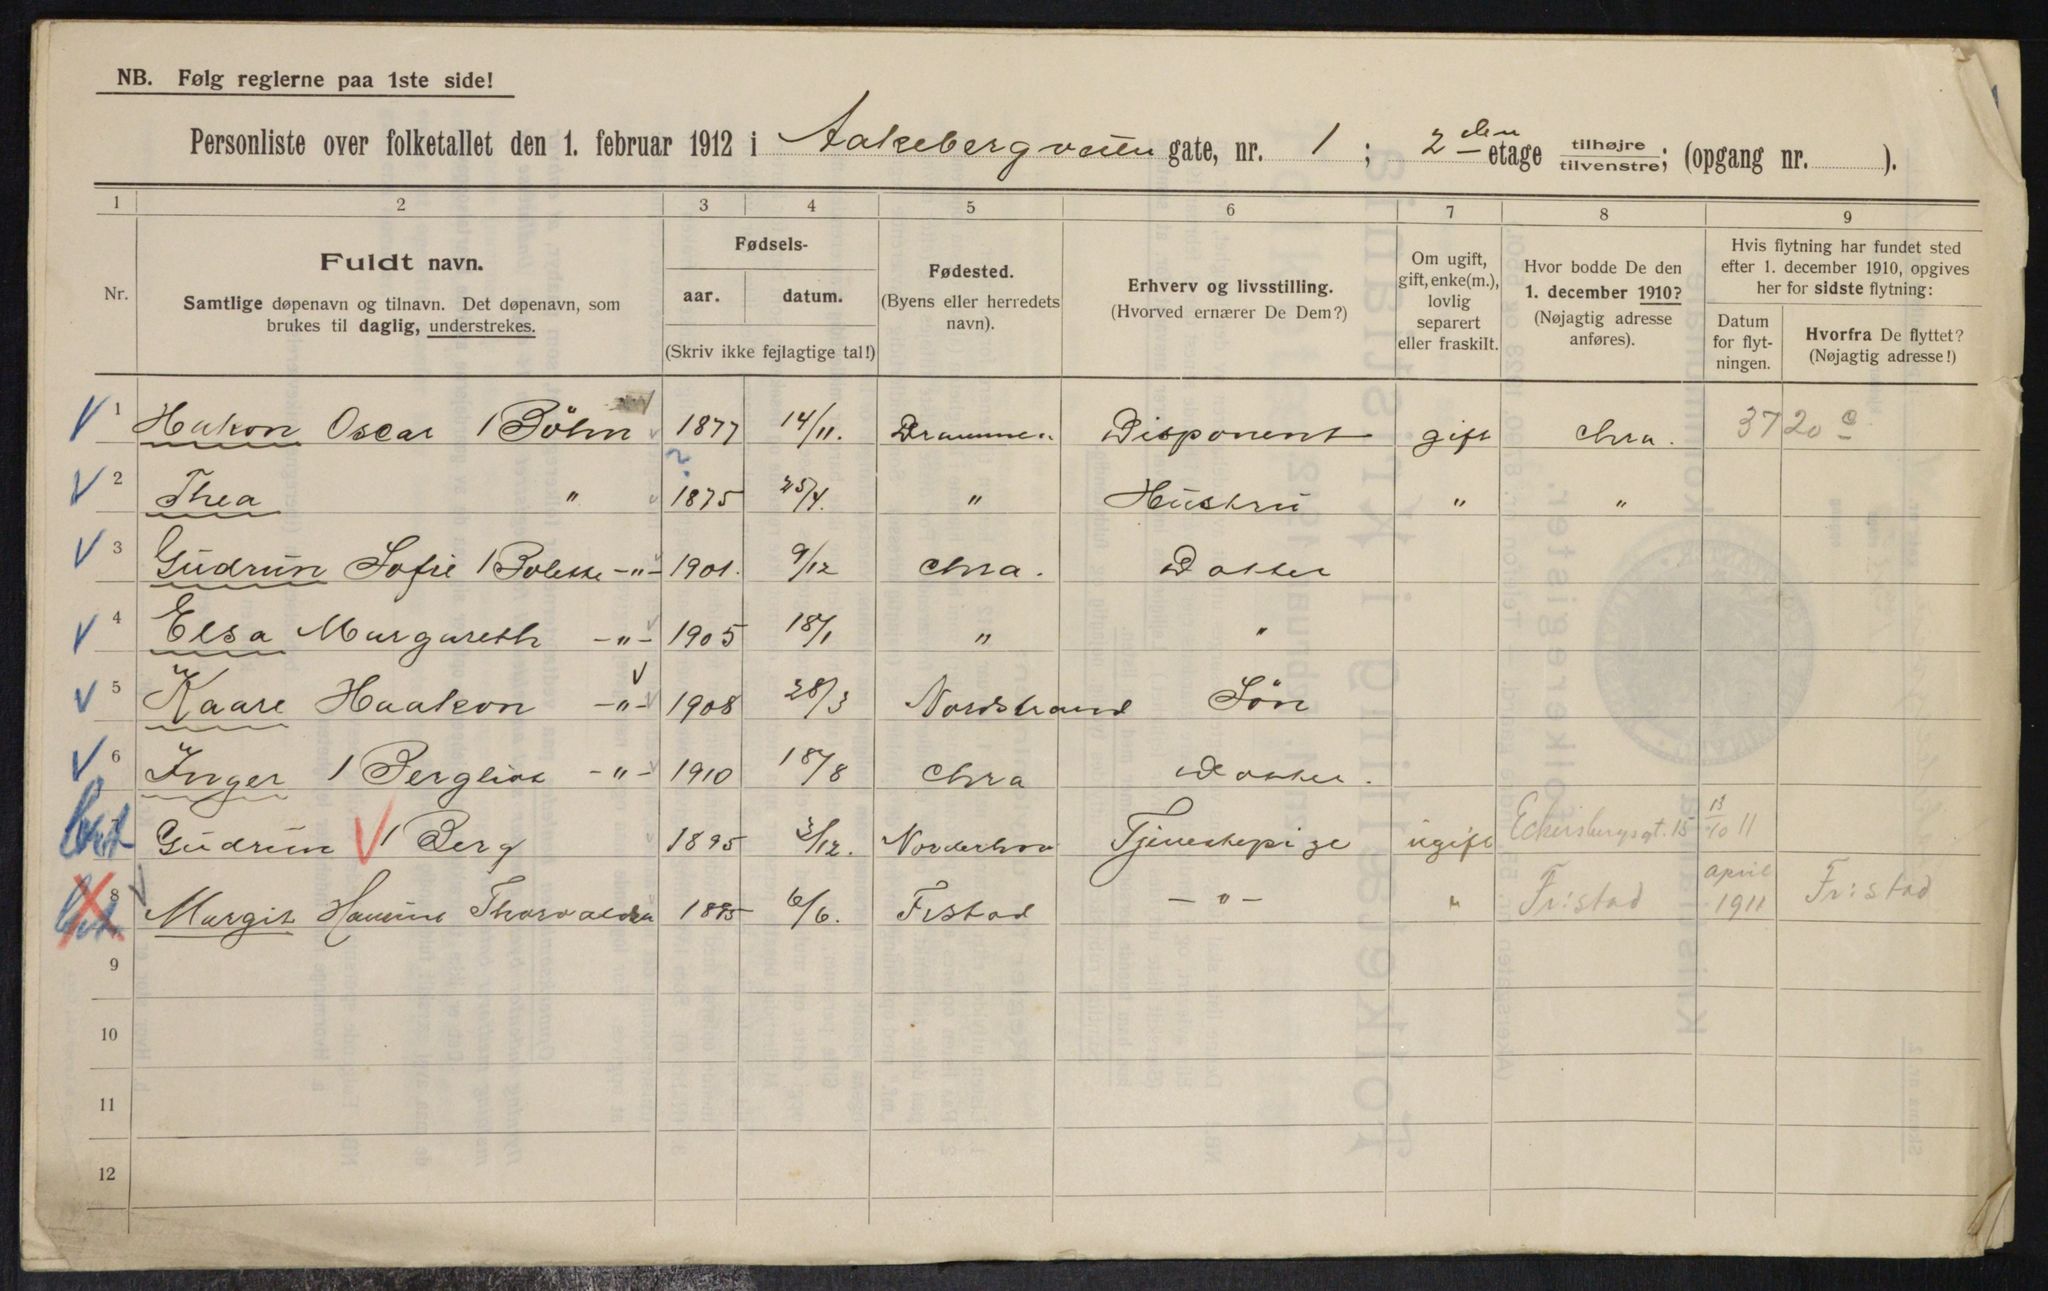 NB. Følg reglerne paa 1ste side!
Personliste over folketallet den 1. februar 1912 i Aakebergveien gate, nr. 1 ; 2den etage tilhøjre tilvenstre; (opgang nr. ).
1 2 3 4 5 6 7 8 9
Nr.
Fuldt navn.
Samtlige døpenavn og tilnavn. Det døpenavn, som
brukes til daglig, understrekes.
Fødsels-
aar. datum.
(Skriv ikke fejlagtige tal!)
Fødested.
(Byens eller herredets
navn).
Erhverv og livsstilling.
(Hvorved ernærer De Dem?)
Om ugift,
gift, enke(m.),
lovlig
separert
eller fraskilt.
Hvor bodde De den
1. december 1910?
(Nøjagtig adresse
anføres).
Hvis flytning har fundet sted
efter 1. december 1910, opgives
her for sidste flytning:
Datum
for flyt-
ningen.
Hvorfra De flyttet?
(Nøjagtig adresse!)
1 Hakon Oscar Böhn 1877 14/11. Drammen Disponent gift Chra. 3720 c
2 Thea " 1875 25/4. " Hustru " "
3 Gudrun Sofie Bolette -"- 1901. 9/12 Chra. Datter
4 Elsa Margareth -"- 1905 18/1 " "
5 Kaare Haakon -"- 1908 28/3 Nordstrand Søn
6 Inger Bergliot -"- 1910 18/8 Chra Datter.
7 Gudrun Berg 1895 3/12. Norderhov Tjenestepige ugift Eckersbergsgt. 15 13/10 11
8 Margit Thorvaldsen 1895 6/6. Frstad -"- " Fr:stad april 1911 Fr:stad
9
10
11
12